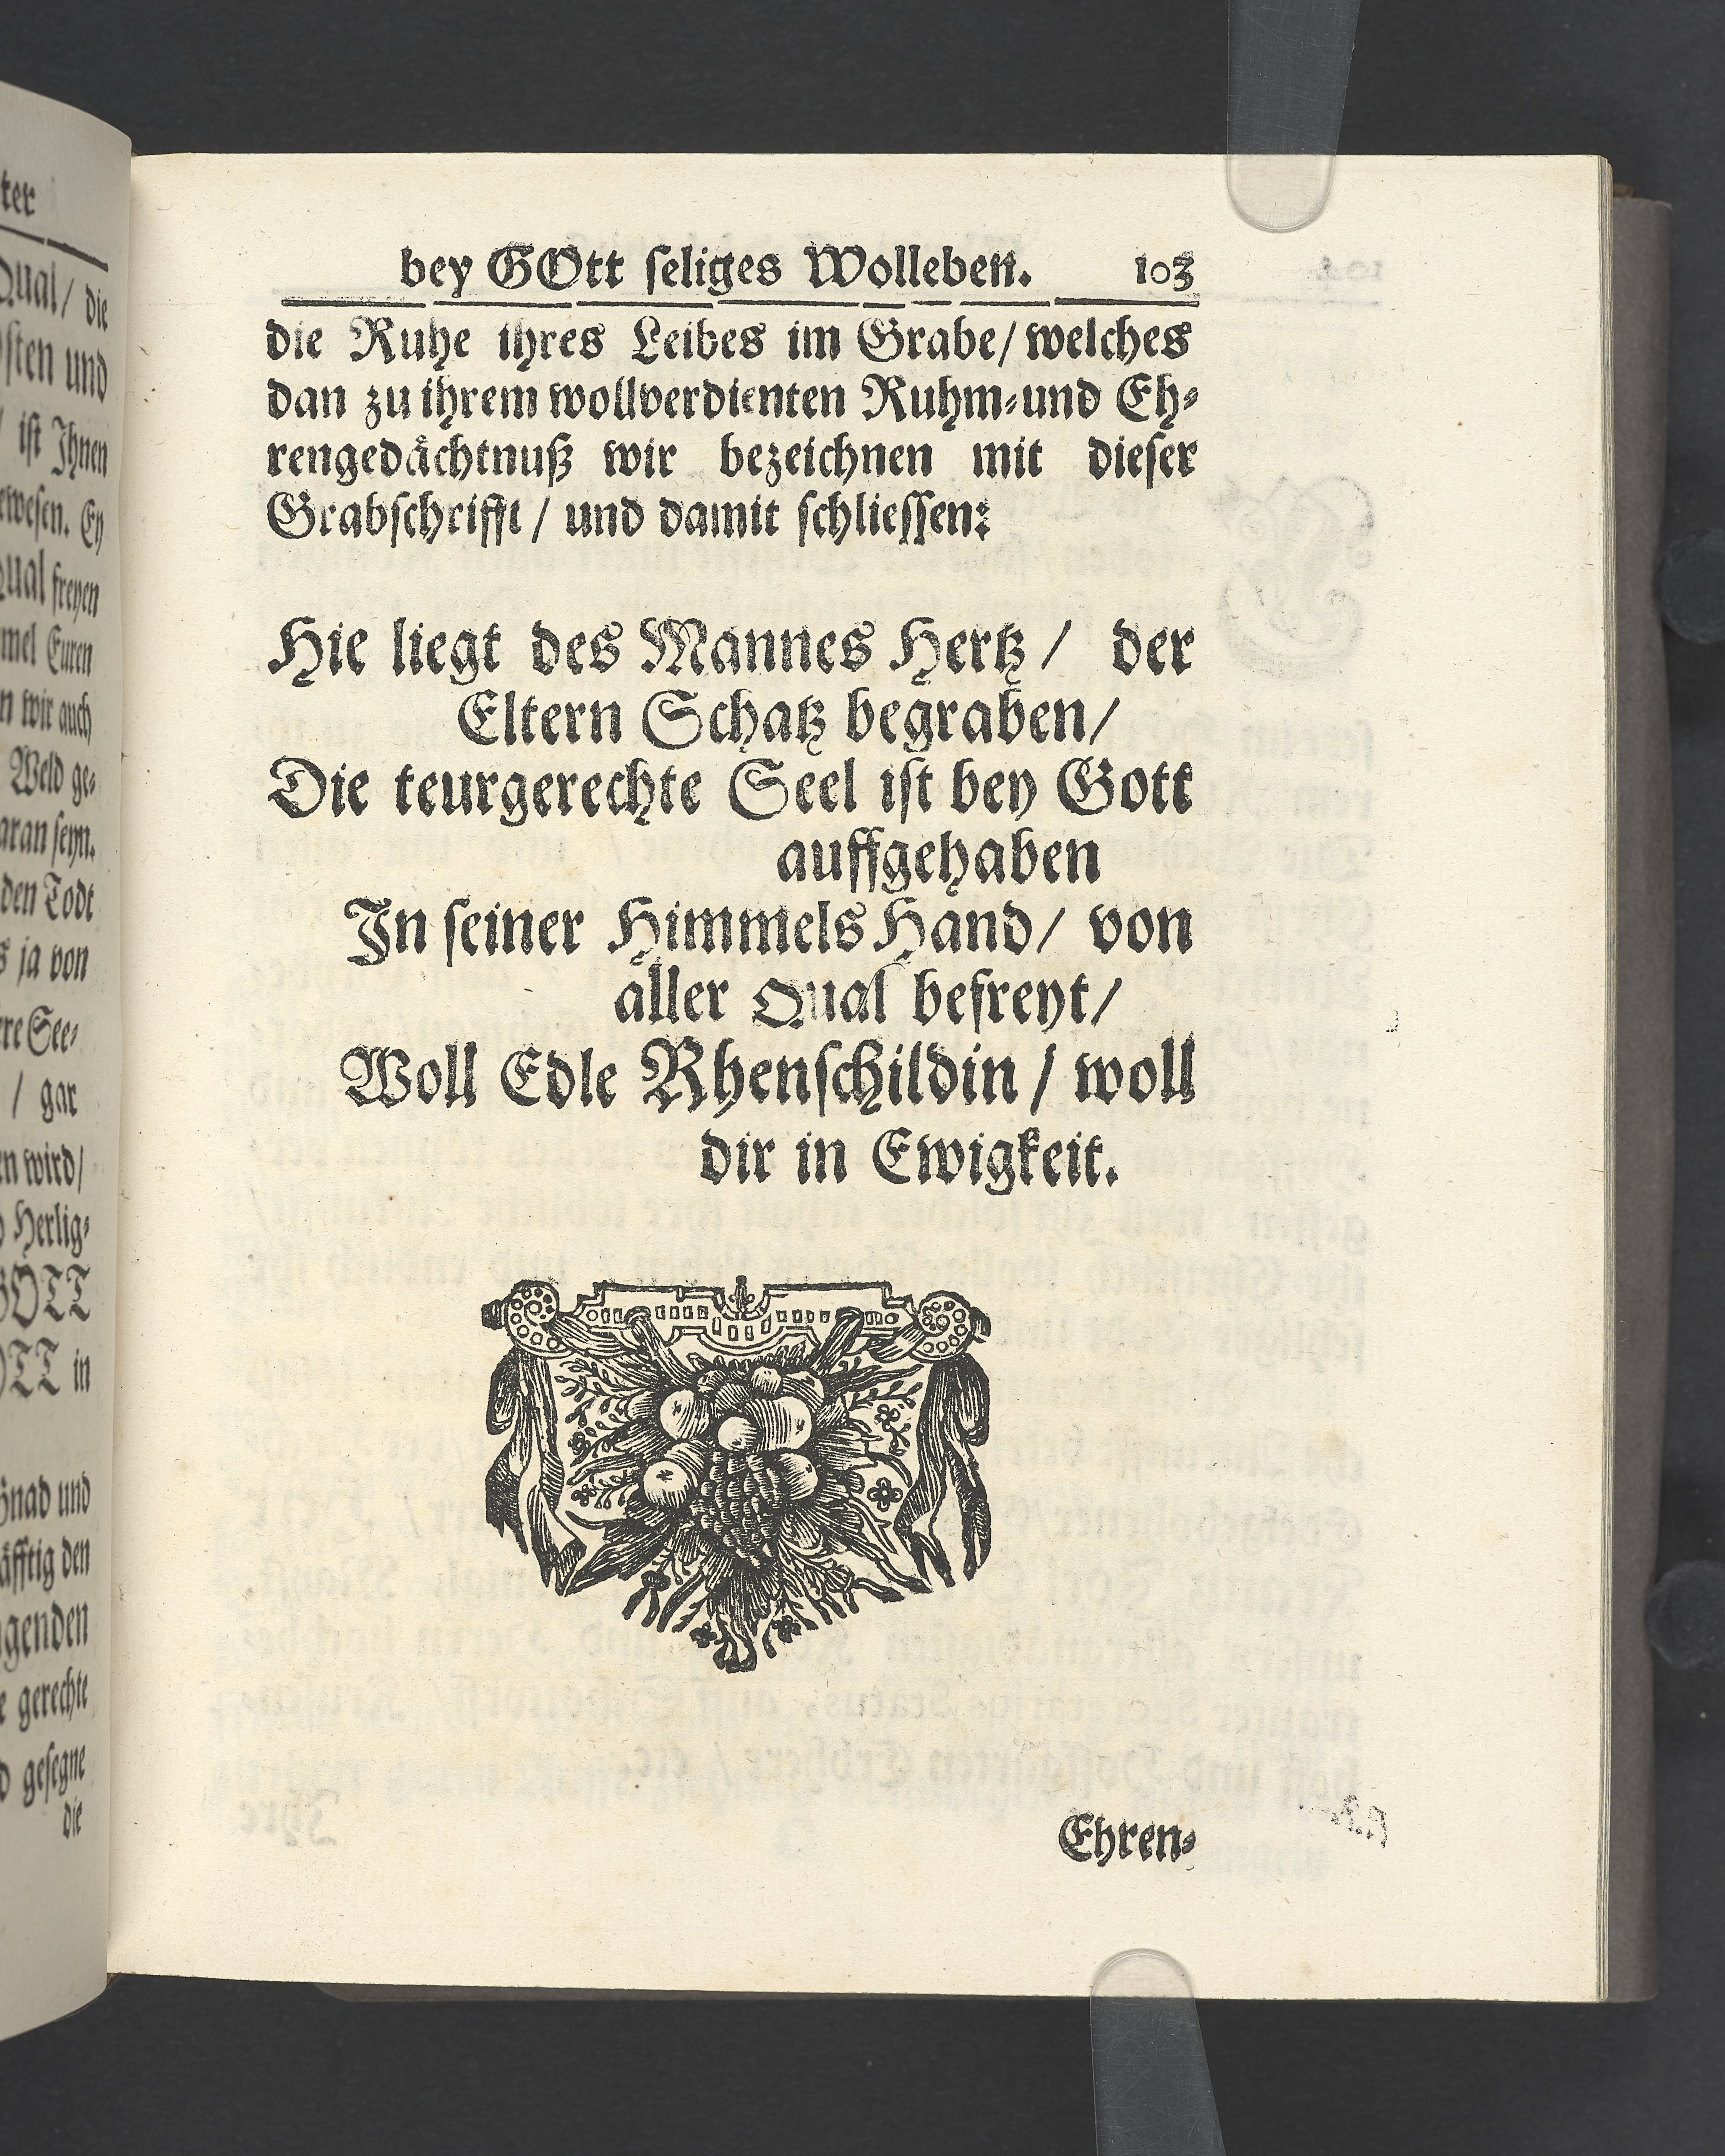 ter
Qual/ die
sten und
/ ist Ihnen
ewesen. Ey
Qual freyen
mel Euren
n wir auch
Weld ge⸗
aran seyn.
den Todt
s ja von
re See⸗
/ gar
en wird/
Herlig⸗
GOTT
OTT in
Gnad und
äfftig den
genden
e gerechte
d gesegne
die
bey GOtt ſeliges Wolleben. 103
die Ruhe ihres Leibes im Grabe/ welches
dan zu ihrem wollverdienten Ruhm⸗und Eh⸗
rengedaͤchtnuß wir bezeichnen mit dieſer
Grabſchrifft/ und damit ſchlieſſen:
Hie liegt des Mannes Hertz/ der
Eltern Schatz begraben/
Die teurgerechte Seel iſt bey Gott
auffgehaben
In ſeiner Himmels Hand/ von
aller Qual befreyt/
Woll Edle Rhenſchildin/ woll
dir in Ewigkeit.
Ehren⸗